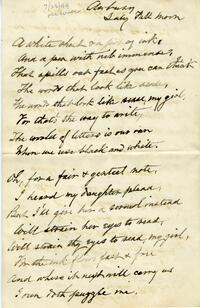 Asbury
July Fill Morn
A white sheet
And a pen with nib immense,
That spells out fast as you can think
The words that look like sense,
The words that look like sense, my girl,
For that's the way to write,
The world of letters is our own
When we use black and white.
Oh, for a fair & gentest note,
I heard my daughter plead,
But I'll give her a second instead
We'll strain her eyes to read,
We'll strain thy eyes to read, my girl,
fast & free
And where it next will carry us
I own doth puzzle me.